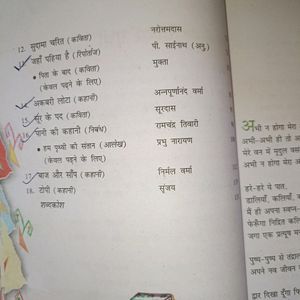 12. सुदामा चरित (कविता) नरोत्तमदास
13. जहाँ पहिया है (रिपोर्ताज) पी. साईनाथ (अनु.)
• पिता के बाद (कविता) मुक्ता
(केवल पढ़ने के लिए)
14. अकबरी लोटा (कहानी) अन्नपूर्णानंद वर्मा
15. सूर के पद (कविता) सूरदास
16. पानी की कहानी (निबंध) रामचंद्र तिवारी
• हम पृथ्वी की संतान (आलेख) प्रभु नारायण
(केवल पढ़ने के लिए)
17. बाज और साँप (कहानी) निर्मल वर्मा
18. टोपी (कहानी) सृंजय
शब्दकोश
अभी न होगा मेरा
अभी-अभी ही तो
मेरे वन में मृदुल
अभी न होगा मेरा
हरे-हरे ये पात,
डालियाँ, कलियाँ,
मैं ही अपना स्वप्न-
फेरूँगा निद्रित
जगा एक प्रत्यूष
पुष्प-पुष्प से तंद्रालस
अपने नव जीवन
द्वार दिखा दूँगा फिर